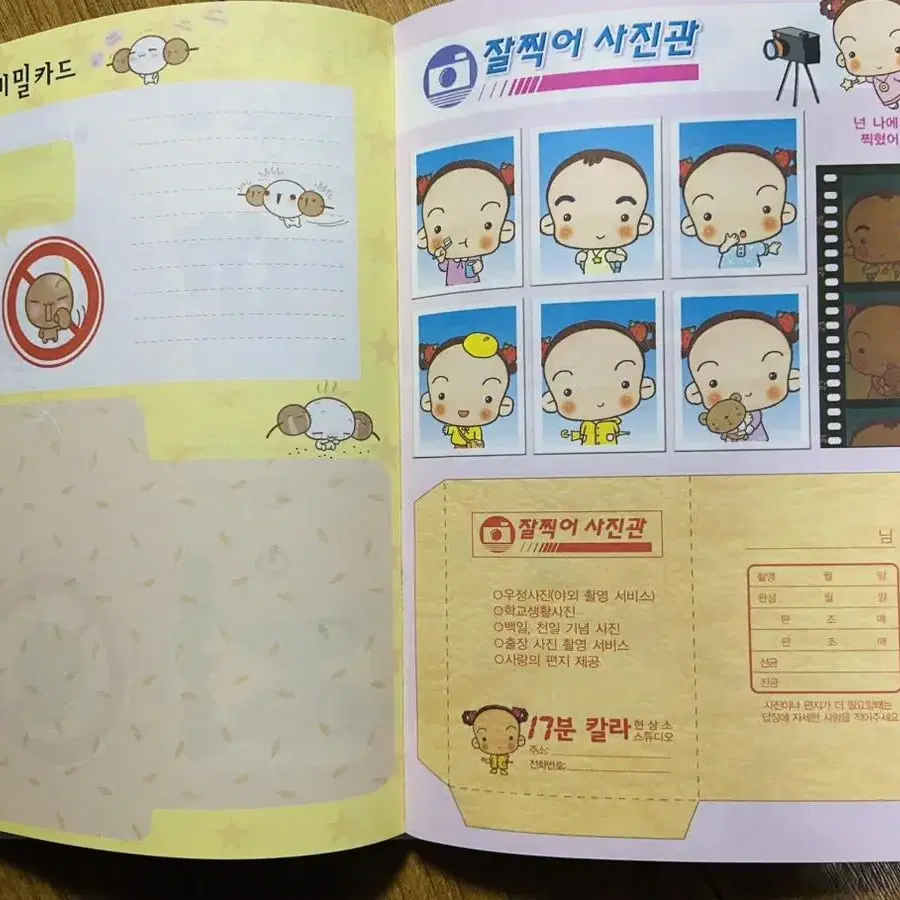 비밀카드
잘찍어 사진관
넌 나에
찍혔어
잘찍어 사진관
님
○우정사진(야외 촬영 서비스)
○학교생활사진
○백일, 천일 기념 사진
○출장 사진 촬영 서비스
○사랑의 편지 제공
촬영 월 일
완성 월 일
판 조 매
판 조 매
선금
잔금
사진이나 편지가 더 필요할때는
답장에 자세한 사항을 적어주세요
17분 칼라 현상소
스튜디오
주소:
전화번호: